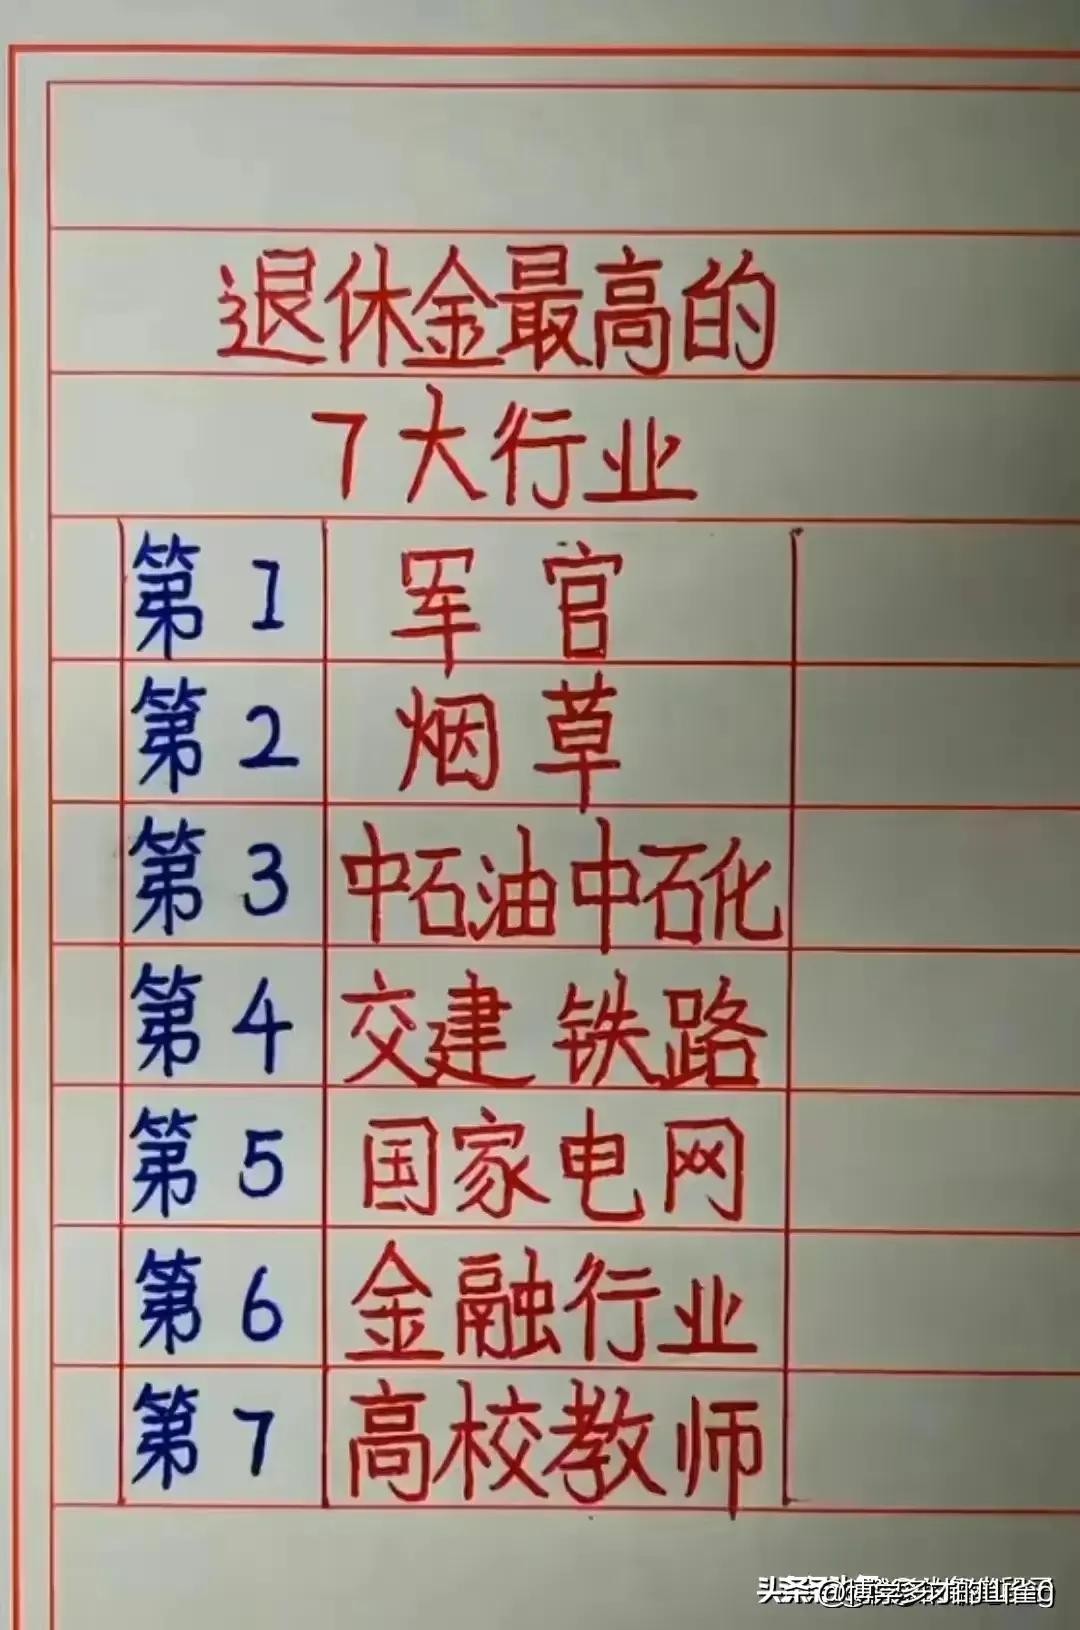 退休金最高的
7大行业
第1 军官
第2 烟草
第3 中石油中石化
第4 交建 铁路
第5 国家电网
第6 金融行业
第7 高校教师